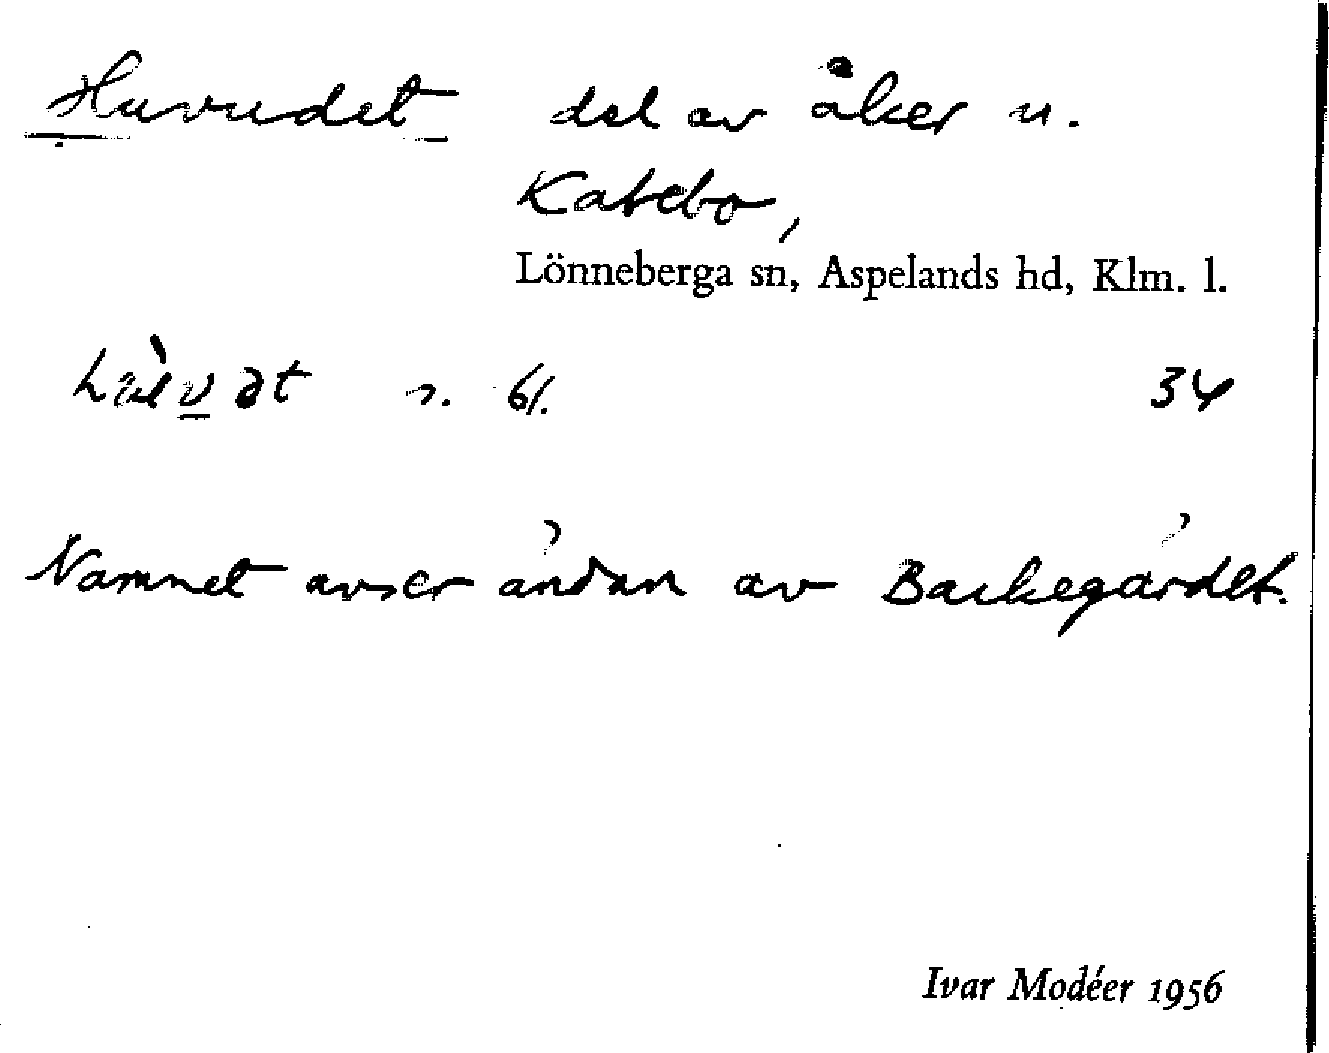 Huvudet del av åker u.
Katebo,
Lönneberga sn, Aspelands hd, Klm. l.
n. bf. 34
Namnet avser ändan av Backegärdet.
Ivar Modéer 1956